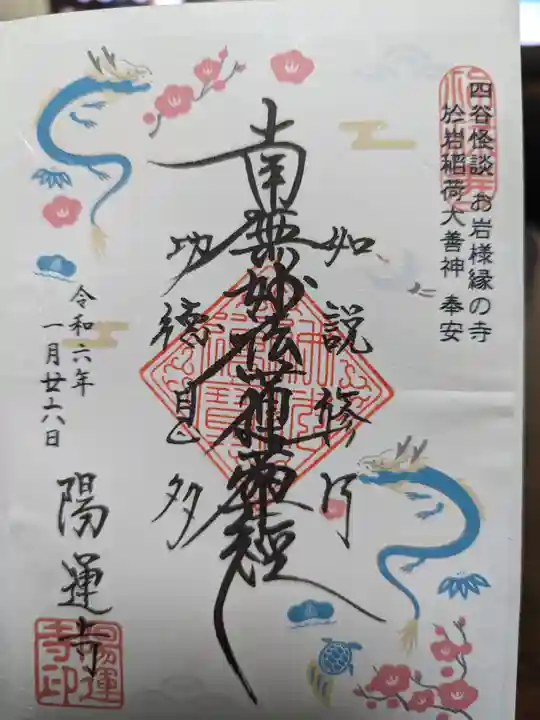 四谷怪談 お岩様縁の寺
於岩稲荷大善神 奉安
如説修行
南無妙法蓮華経
功徳甚多
令和六年
一月廿六日
陽運寺
陽運
寺印